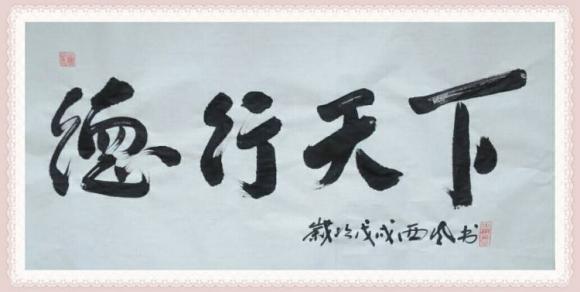 德行天下
岁於戊戌西风书